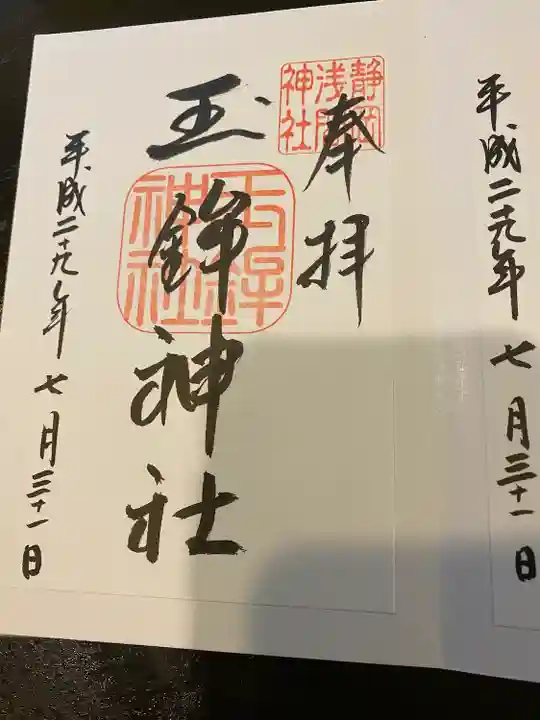 平成二十九年七月三十一日
静岡
浅間
神社
奉拝
玉鉾神社
玉鉾
神社
平成二十九年七月三十一日